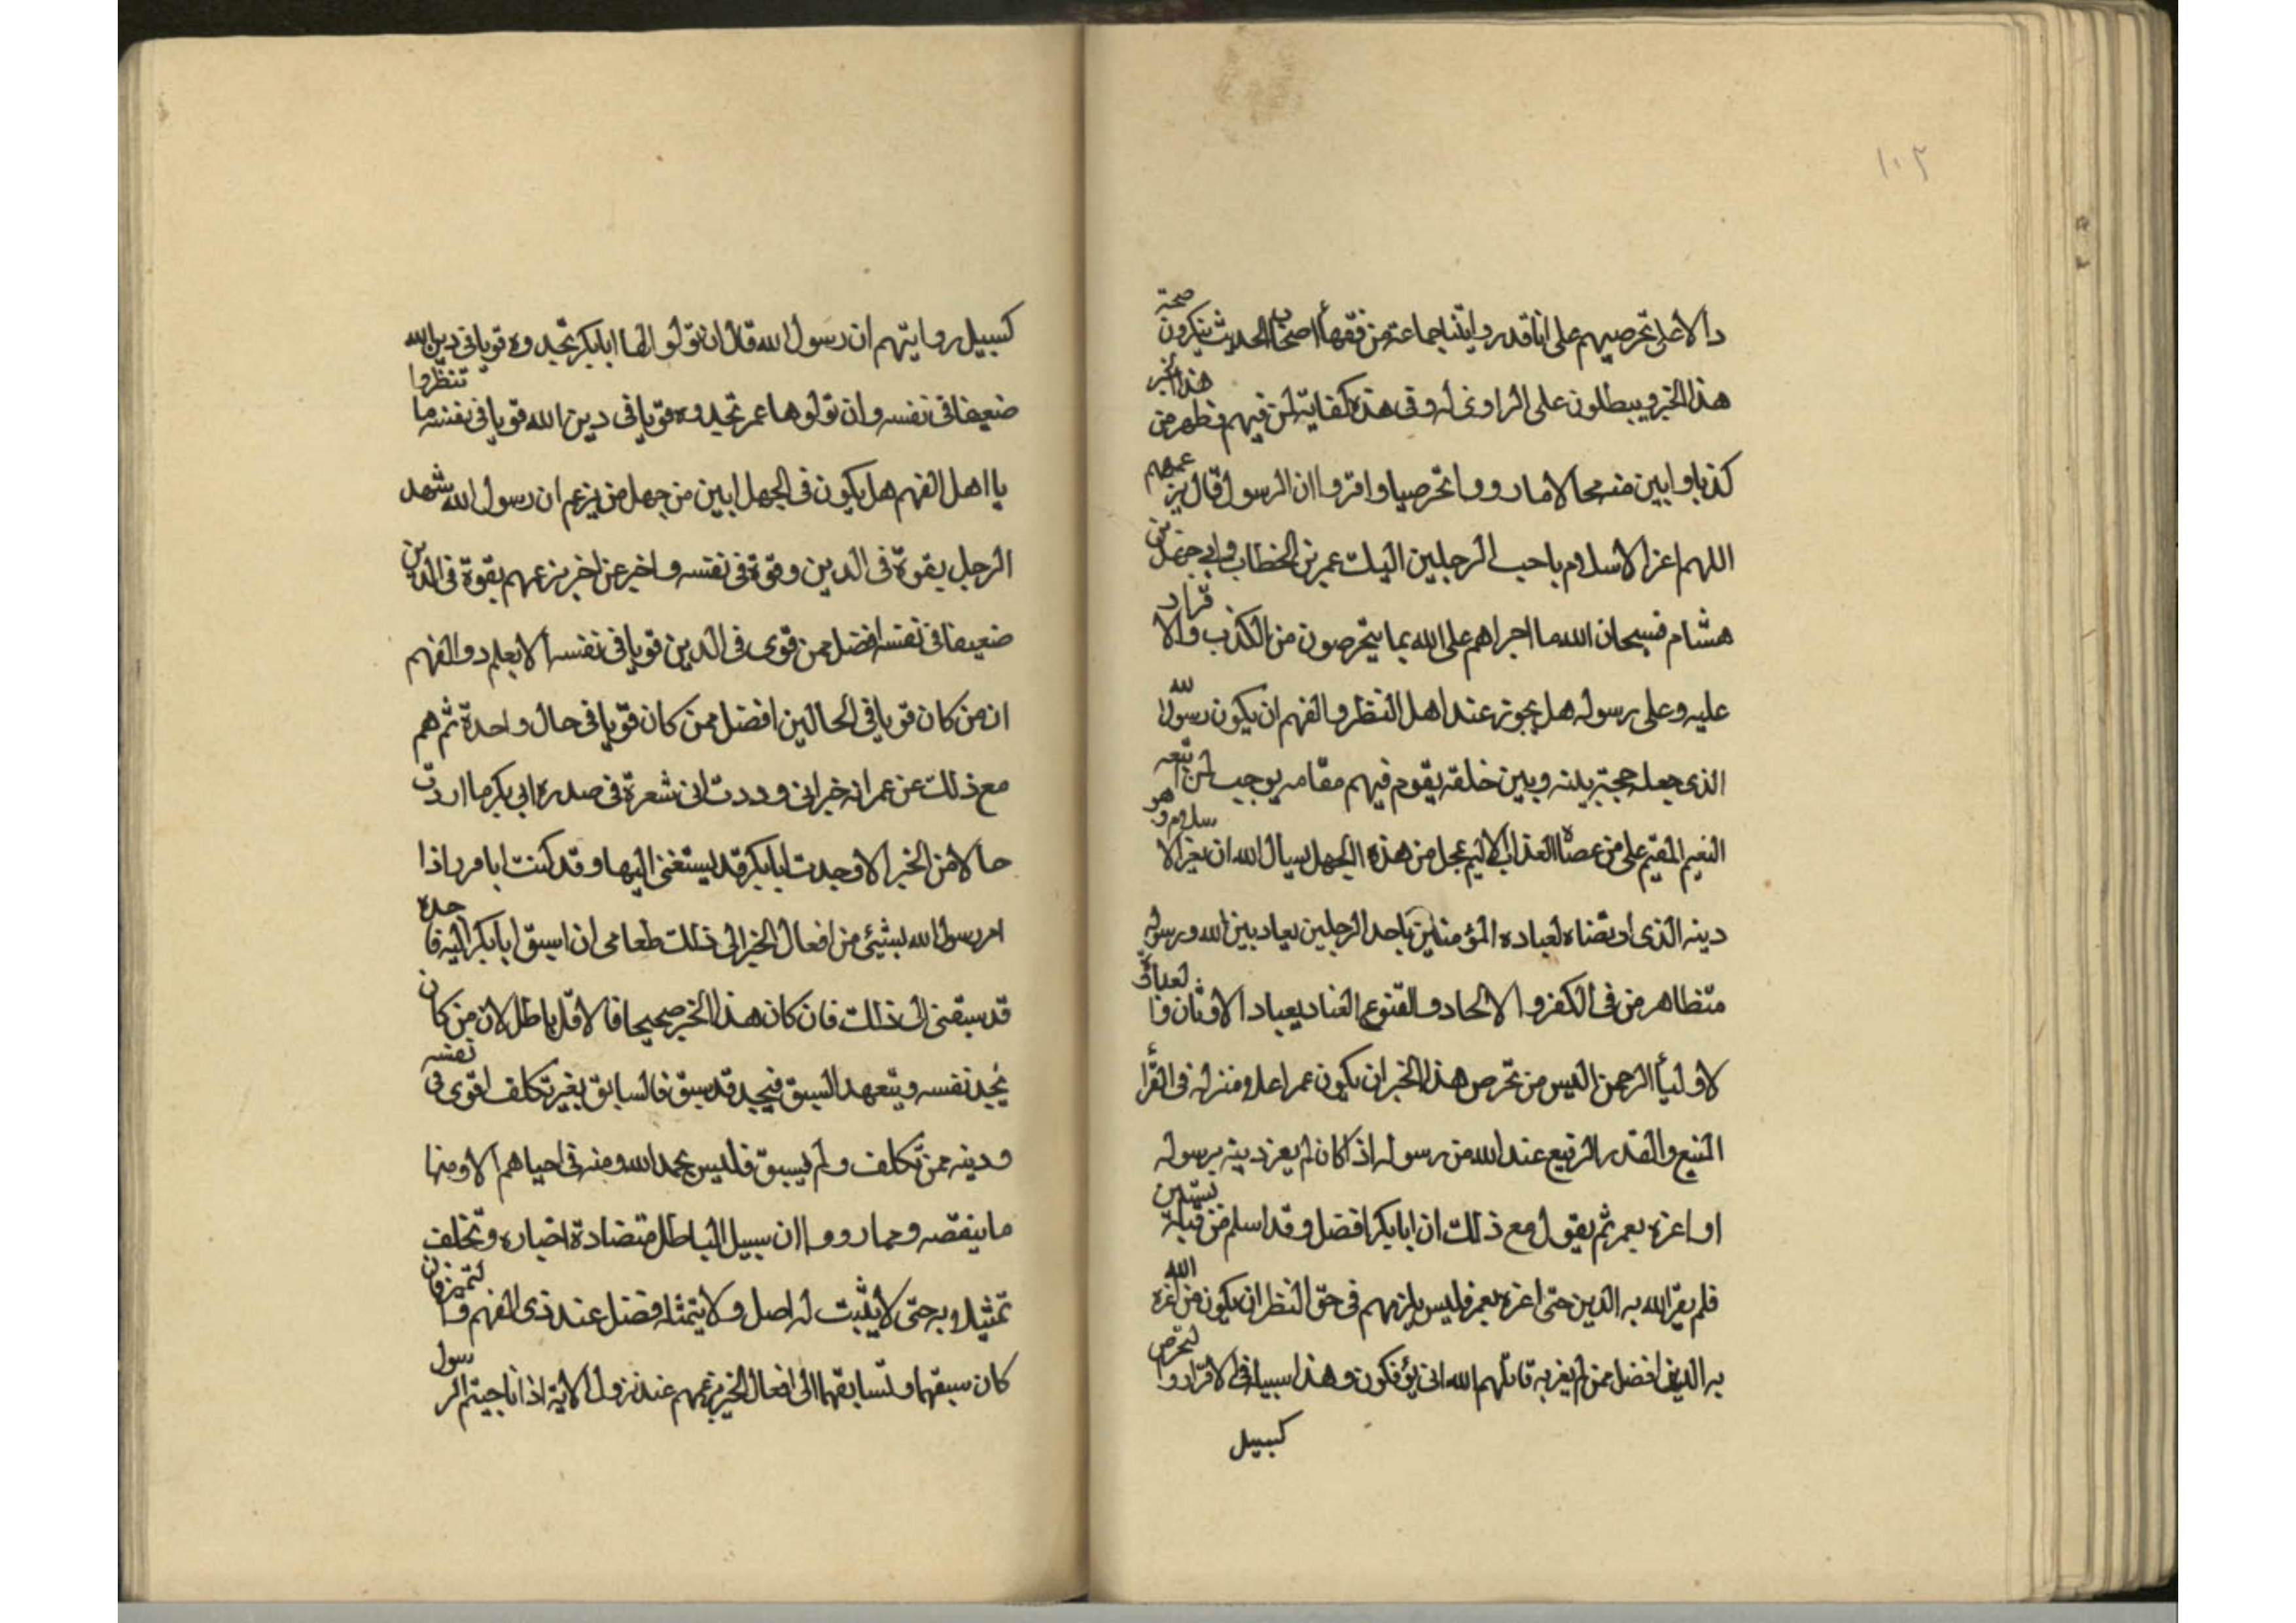 ١٠٢
دالا على تخرصهم على انا قد روايتنا جماعة من فقهاء اصحاب الحديث ينكرون صحة
هذا الخبر ويبطلون على الراوى له وفى هذه كفاية لمن فهم فظهر من هذا الخبر
كذبا وابين منه محالا ما رووا تخرصا وافتروا ان الرسول قال بزعمهم
اللهم اعز الاسلام باحب الرجلين اليك عمر بن الخطاب وابى جهل بن
هشام فسبحان الله ما اجراهم على الله بما يتخرصون من الكذب والافتراء
عليه وعلى رسوله هل يجوز عند اهل النظر والفهم ان يكون رسول الله
الذى جعله حجة بينه وبين خلقه يقوم فيهم مقامه يوجب لمن اتبعه
النعيم المقيم على من عصاه العذاب الاليم عجل من هذه الجهل يسال الله ان يعز الاسلام وهو
دينه الذى ارتضاه لعباده المؤمنين باحد الرجلين يعادين الله ورسوله
متظاهرين فى الكفر والالحاد العناد بعباد الاوثان
لاولياء الرحمن اليس من تخرص هذا الخبر ان يكون عمر اعلا ومنزلة فى القرا
المنيع والقدر الرفيع عند الله من رسوله اذ كان لم يعز دينه برسوله
او اعزه بعمر ثم يقول مع ذلك ان ابابكر افضل وقد اسلم من قبله
فلم يعز الله به الدين حتى اعزه بعمر فليس يلزمهم فى حق النظر ان يكون من اعز الله
به الدين افضل ممن لم يعز به قاتلهم الله انى يؤفكون وهذا سبيله فى الافتراء والتخرص
كسبيل
كسبيل روايتهم ان رسول الله قال ان تولوها ابابكر تجدوه قويا فى دين الله
ضعيفا فى نفسه وان تولوها عمر تجدوه قويا فى دين الله قويا فى نفسه ما تنظروا
يا اهل الفهم هل يكون فى الجهل ابين من جهل من يزعم ان رسول الله شهد
الرجل بقوة فى الدين وقوة فى نفسه واخر عن اخر بزعمهم بقوة فى الدين
ضعيفا فى نفسه افضل ممن قوى فى الدين قويا فى نفسه الا يعلم ذو الفهم
ان من كان قويا فى الحالين افضل ممن كان قويا فى حال واحدة ثم هم
مع ذلك عن عمر انه خبر انى وددت انى شعرة فى صدر ابى بكر ما اردت
حالا من الخير الا وجدت ابابكر قد ليستغنى اليها وقد كنت ابامر اذا
امر رسول الله بشيئ من افعال الخير الى ذلك طعامى ان اسبق ابابكر اليه فاجده
قد سبقنى الى ذلك فان كان هذا الخبر صحيحا فالاول باطل لان من كان
يجهد نفسه ويتعهد السبق فيجد قد سبق فالسابق بغير تكلف اقوى فى نفسه
ودينه ممن تكلف ولم يسبق فليس بحمد الله ومنه فى احياهم الا ومنها
ما ينقضه وحما رووا ان سبيل الباطل متضادة اخباره وتختلف
تمثيله به حتى لا يثبت له اصل ولا يتمثله فضل عند ذى الفهم
كان سبقهما ولسابقهما الى افعال الخير بزعمهم عند نزول الاية اذا ناجيتم الرسول